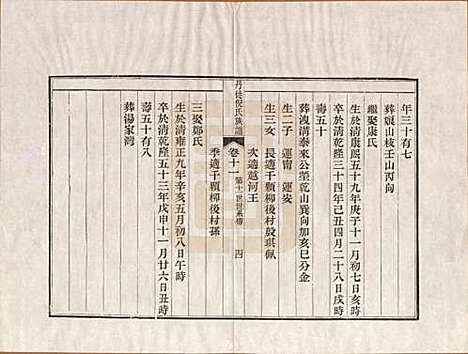 年三十有七
葬嬎山核壬山丙向
繼娶康氏
生於清康熙五十九年庚子十一月初七日亥時
卒於清乾隆三十四年己丑四月二十八日戌時
壽五十
葬洩溝泰來公塋乾山巽向加亥巳分金
生二子 運甯 運安
生三女 長適千顆柳後村殷琪佩
次適越河王
丹徒倪氏族譜 卷十一 第十一世世系傳 四
季適千顆柳後村孫
三娶鄭氏
生於清雍正九年辛亥五月初八日午時
卒於清乾隆五十三年戊申十一月廿六日丑時
壽五十有八
葬湯家灣